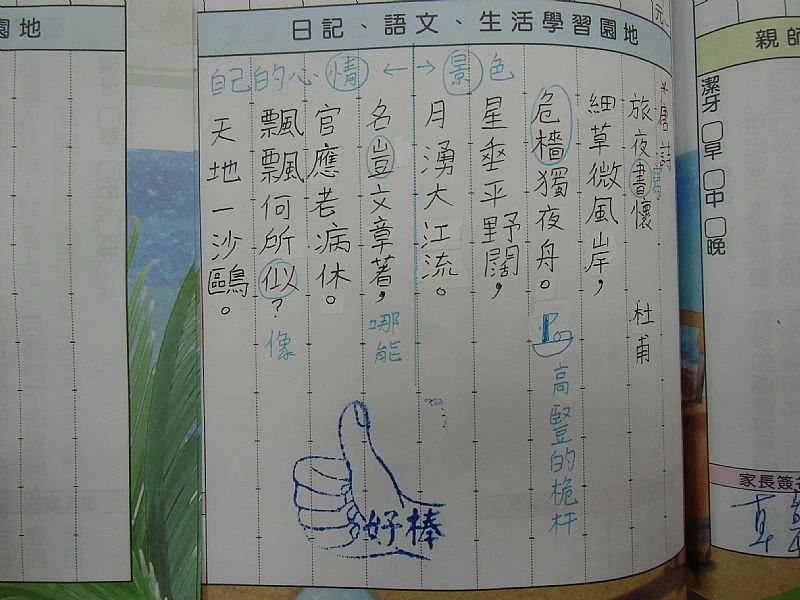 園地
日記、語文、生活學習園地
自己的心情 ←→ 景色
*唐詩
旅夜書懷 杜甫
寫
細草微風岸，
危檣獨夜舟。
高豎的桅杆
星垂平野闊，
月湧大江流。
名豈文章著，
哪能
官應老病休。
飄飄何所似？
像
天地一沙鷗。
好棒
親師
潔牙 □早 □中 □晚
家長簽名